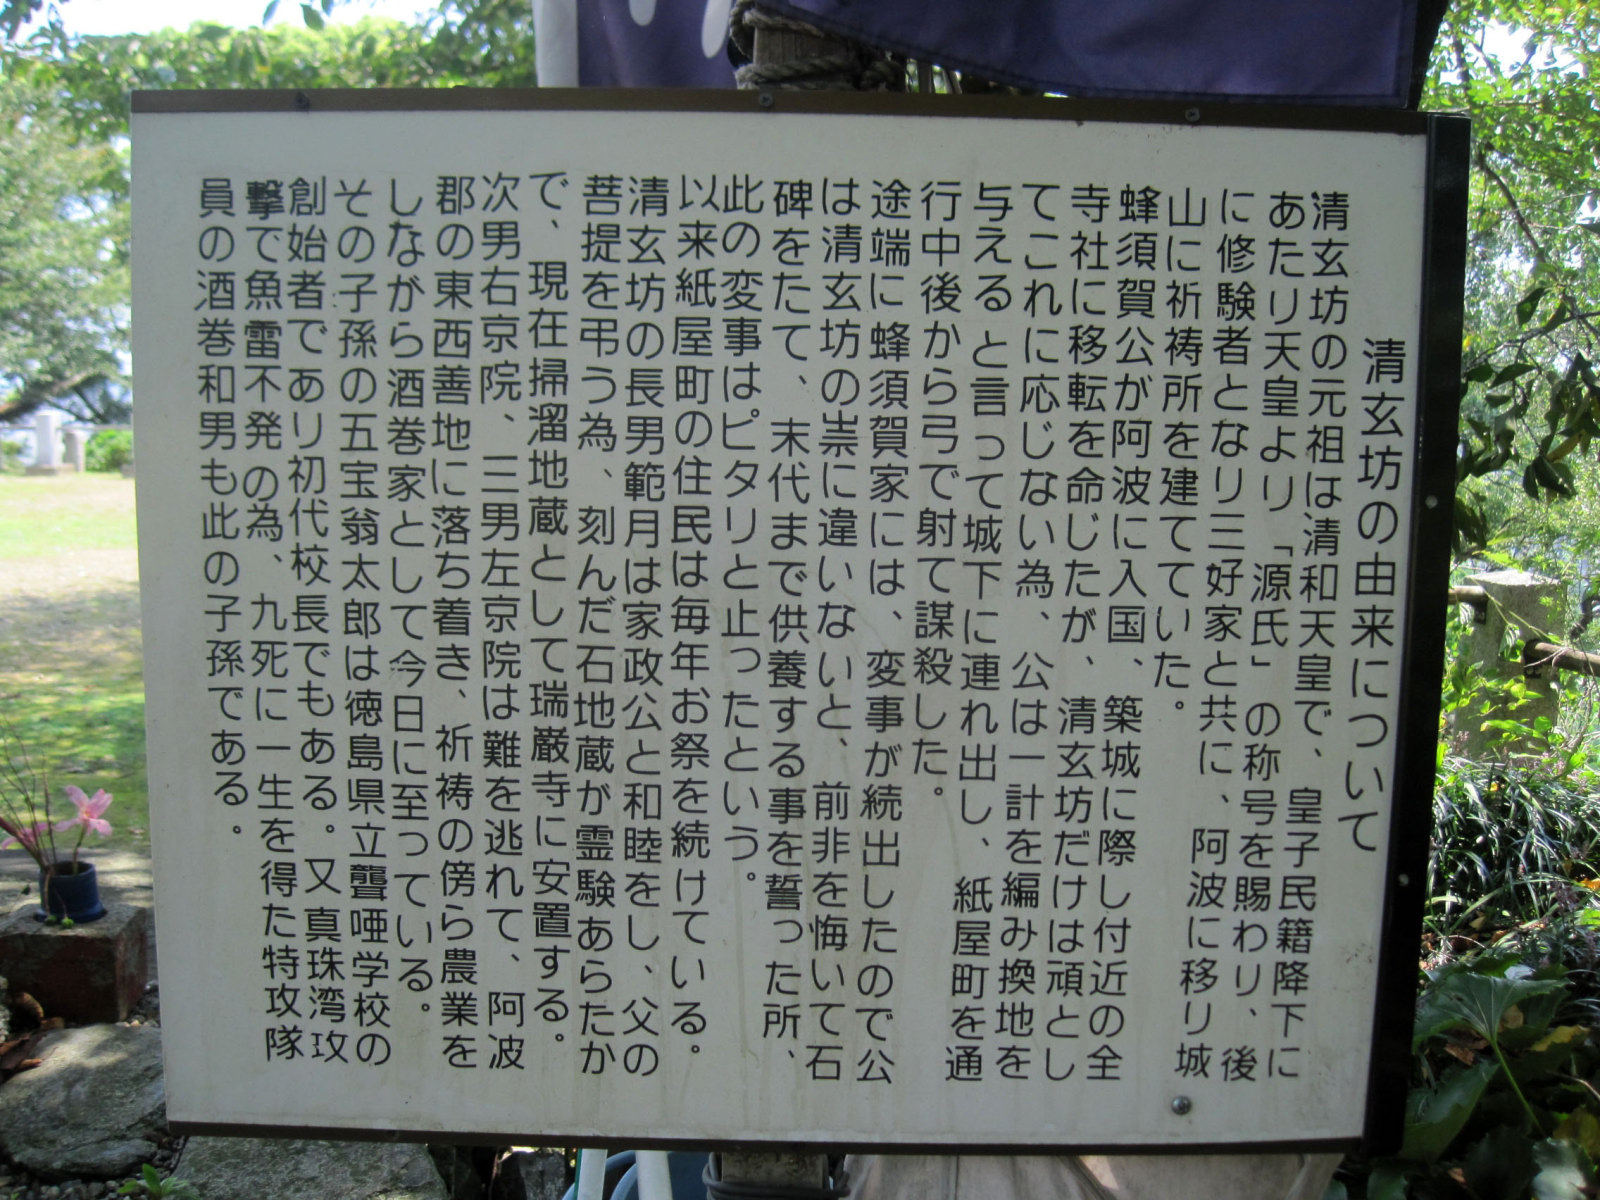 清玄坊の由来について
清玄坊の元祖は清和天皇で、皇子民籍降下に
あたり天皇より「源氏」の称号を賜わり、後
に修験者となり三好家と共に、阿波に移り城
山に祈祷所を建てていた。
蜂須賀公が阿波に入国、築城に際し付近の全
寺社に移転を命じたが、清玄坊だけは頑とし
てこれに応じない為、公は一計を編み換地を
与えると言って城下に連れ出し、紙屋町を通
行中後から弓で射て謀殺した。
途端に蜂須賀家には、変事が続出したので公
は清玄坊の祟に違いないと、前非を悔いて石
碑をたて、末代まで供養する事を誓った所、
此の変事はピタリと止ったという。
以来紙屋町の住民は毎年お祭を続けている。
清玄坊の長男範月は家政公と和睦をし、父の
菩提を弔う為、刻んだ石地蔵が霊験あらたか
で、現在掃溜地蔵として瑞巌寺に安置する。
次男右京院、三男左京院は難を逃れて、阿波
郡の東西善地に落ち着き、祈祷の傍ら農業を
しながら酒巻家として今日に至っている。
その子孫の五宝翁太郎は徳島県立聾唖学校の
創始者であり初代校長でもある。又真珠湾攻
撃で魚雷不発の為、九死に一生を得た特攻隊
員の酒巻和男も此の子孫である。